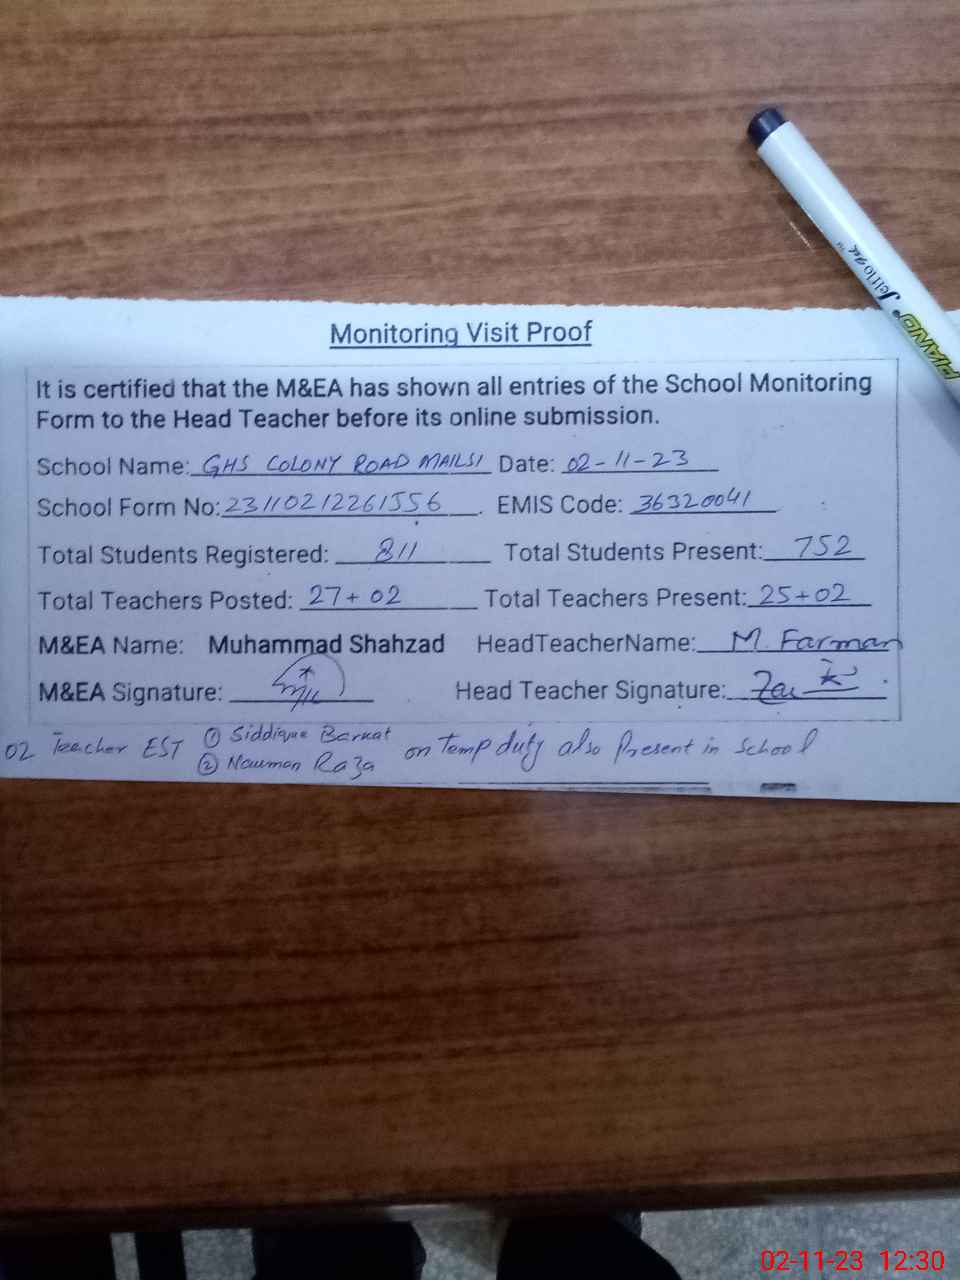 Jetflo gel
PIANO
Monitoring Visit Proof
It is certified that the M&EA has shown all entries of the School Monitoring
Form to the Head Teacher before its online submission.
School Name: GHS COLONY ROAD MAILSI Date: 02-11-23
School Form No: 23110212261556 EMIS Code: 36320041
Total Students Registered: 811 Total Students Present: 752
Total Teachers Posted: 27+02 Total Teachers Present: 25+02
M&EA Name: Muhammad Shahzad HeadTeacherName: M. Farman
M&EA Signature: Head Teacher Signature:
02 Teacher EST ① Siddique Barkat on Temp duty also Present in School
② Nauman Raza
02-11-23 12:30